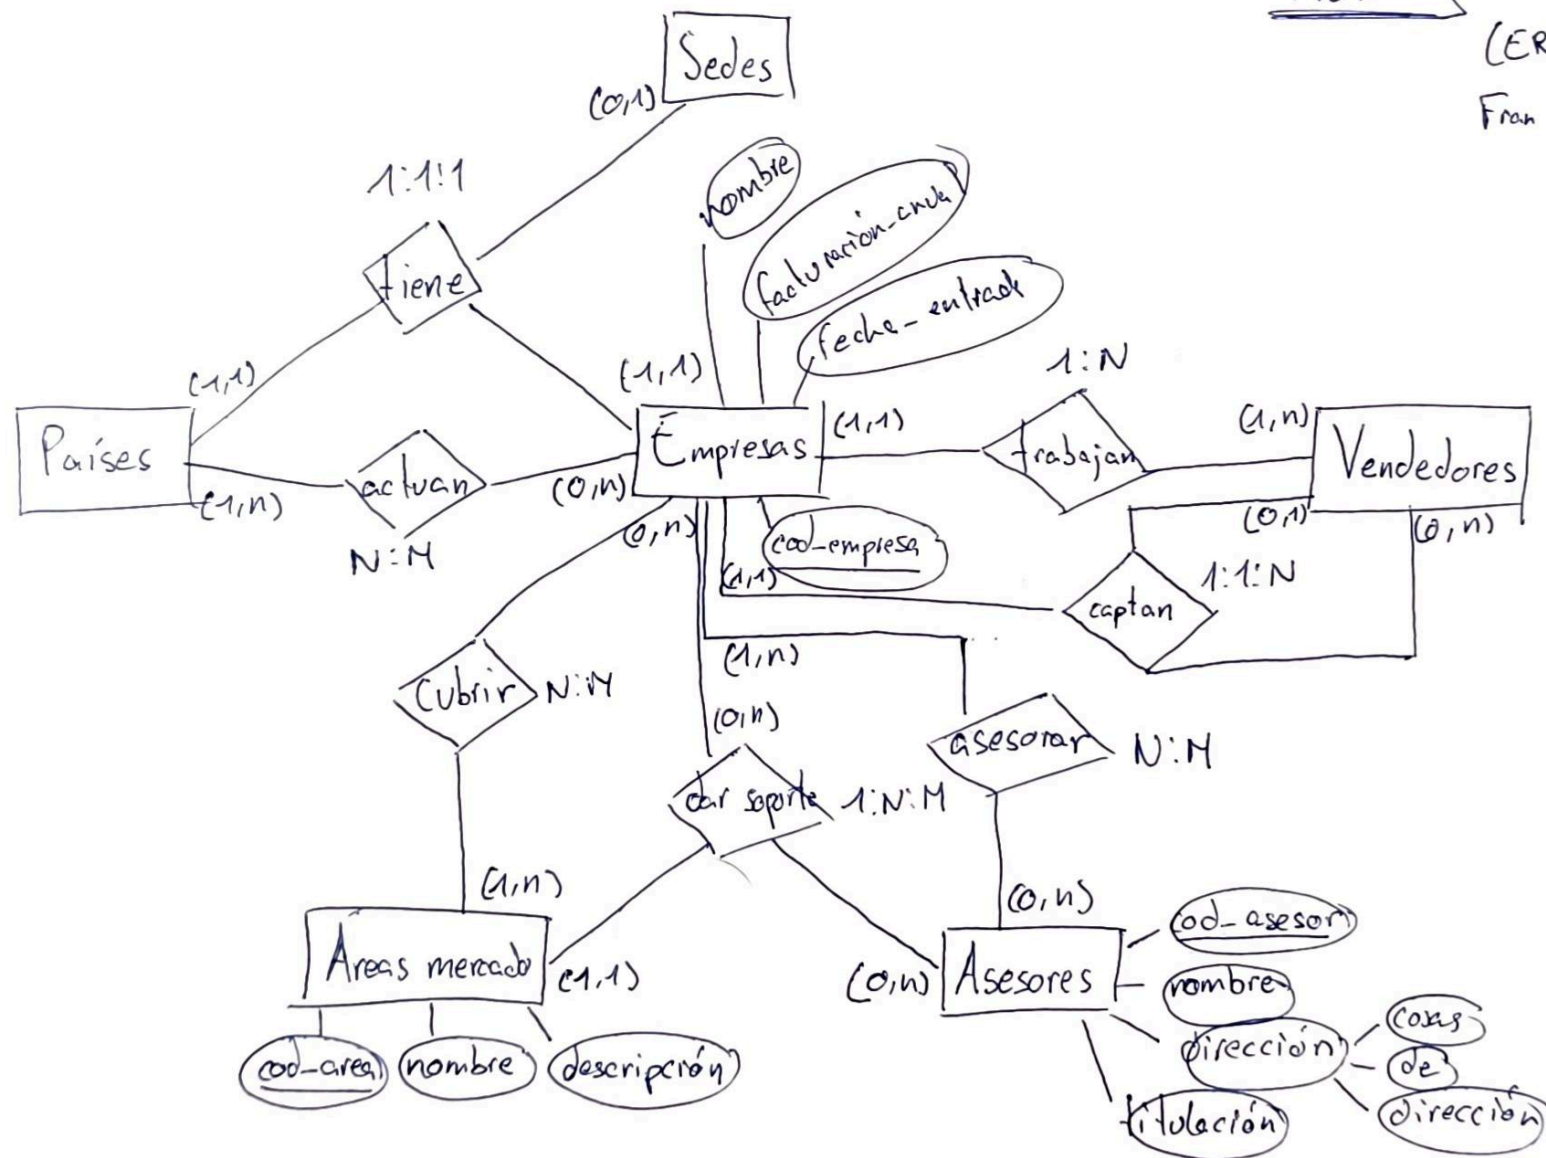 (ER
Fran
Sedes
(0,1)
1:1:1
tiene
nombre
fecha_entrada
(1,1)
(1,1)
1:N
Países
actuan
Empresas
(1,1)
trabajan
(1,n)
Vendedores
(1,n)
(0,n)
N:M
(0,n)
cod_empresa
(0,1)
(0,n)
(1,1)
captan
1:1:N
Cubrir
N:M
(1,n)
(0,n)
asesorar
N:M
dar soporte
1:N:M
(1,n)
(0,n)
Áreas mercado
(1,1)
(0,n)
Asesores
cod_asesor
nombre
dirección
cosas
de
dirección
titulación
cod_area
nombre
descripción